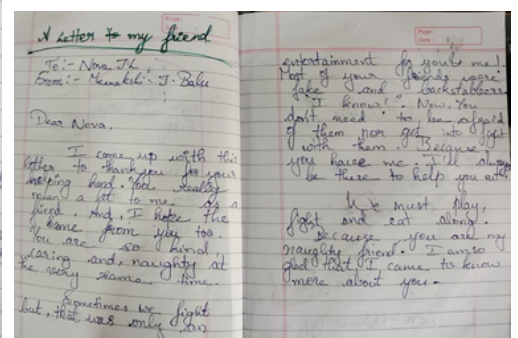 A Letter to my friend
To:- Nova Th.
From:- Meenakshi. J. Babu
Dear Nova,
I came up with this
letter to thank you for your
helping hand. You really
mean a lot to me as a
friend. And, I hope the
same from you too.
You are so kind,
caring and, naughty at
the very same time.
Sometimes we fight
but, that was only an
Page:
Date:
entertainment for you & me!.
Most of your friends were
fake and backstabbers.
"I know!". Now, You
don't need to be afraid
of them nor get into fight
with them. Because
you have me. I'll always
be there to help you out.
We must play,
fight and eat along.
Because you are my
naughty friend. I am so
glad that I came to know
more about you.